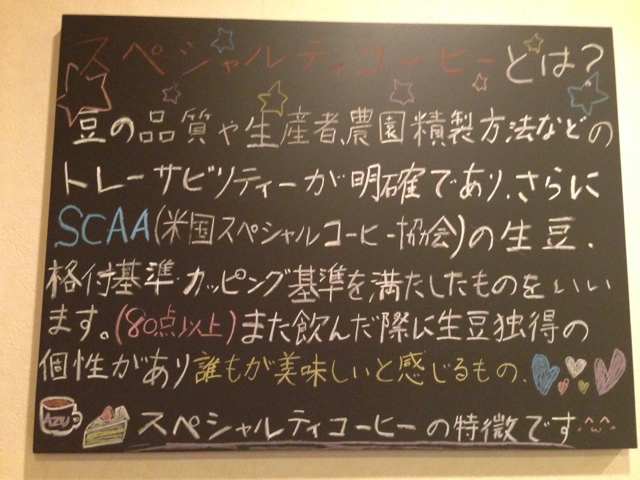 スペシャルティコーヒーとは?
豆の品質や生産者、農園、精製方法などの
トレーサビリティーが明確であり、さらに
SCAA(米国スペシャルコーヒー協会)の生豆、
格付基準・カッピング基準を満たしたものをいい
ます。(80点以上)また飲んだ際に生豆独得の
個性があり誰もが美味しいと感じるもの、
AZU
スペシャルティコーヒーの特徴です^_^